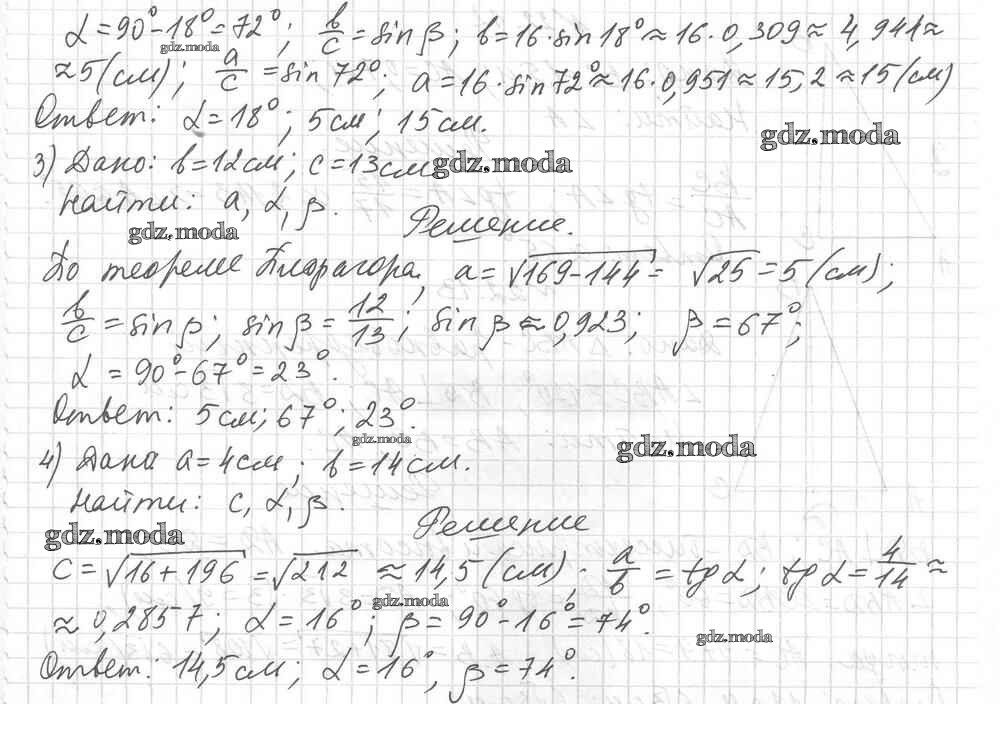 α = 90° − 18° = 72°; b/c = sin β; b = 16 · sin 18° ≈ 16 · 0,309 ≈ 4,944 ≈
gdz.moda
≈ 5 (см); a/c = sin 72°; a = 16 · sin 72° ≈ 16 · 0,951 ≈ 15,2 ≈ 15 (см)
Ответ: α = 18°; 5 см; 15 см.
gdz.moda
3) Дано: b = 12 см; c = 13 см.
gdz.moda
Найти: a, α, β.
gdz.moda
Решение.
По теореме Пифагора, a = √169 − 144 = √25 = 5 (см);
b/c = sin β; sin β = 12/13; sin β ≈ 0,923; β = 67°;
α = 90° − 67° = 23°.
Ответ: 5 см; 67°; 23°.
gdz.moda
gdz.moda
4) Дана a = 4 см; b = 14 см.
Найти: c, α, β.
Решение
gdz.moda
c = √16 + 196 = √212 ≈ 14,5 (см); a/b = tg α; tg α = 4/14 ≈
gdz.moda
≈ 0,2857; α = 16°; β = 90° − 16° = 74°.
gdz.moda
Ответ: 14,5 см; α = 16°, β = 74°.